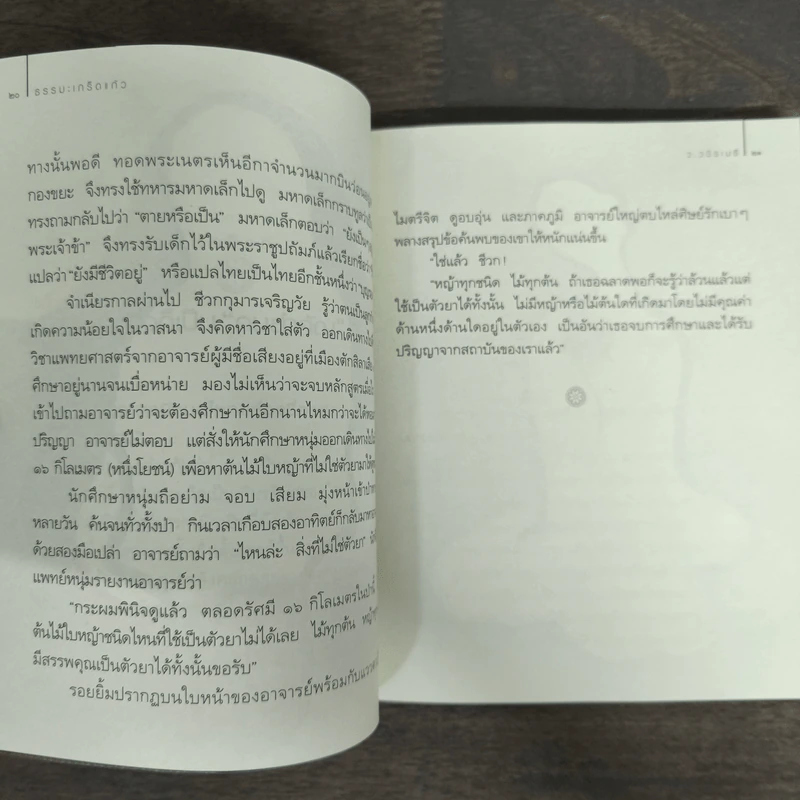 ๒๐ ธรรมะเกร็ดแก้ว
ทางนั้นพอดี ทอดพระเนตรเห็นอีกาจำนวนมากบินว่อน
กองขยะ จึงทรงใช้ทหารมหาดเล็กไปดู มหาดเล็กกราบทูลว่า
ทรงถามกลับไปว่า "ตายหรือเป็น" มหาดเล็กตอบว่า "ยังเป็น
พระเจ้าข้า" จึงทรงรับเด็กไว้ในพระราชูปถัมภ์แล้วเรียกชื่อว่า
แปลว่า "ยังมีชีวิตอยู่" หรือแปลไทยเป็นไทยอีกชั้นหนึ่งว่า
จำเนียรกาลผ่านไป ชีวกกุมารเจริญวัย รู้ว่าตนเป็นลูก
เกิดความน้อยใจในวาสนา จึงคิดหาวิชาใส่ตัว ออกเดินทาง
วิชาแพทยศาสตร์จากอาจารย์ผู้มีชื่อเสียงอยู่ที่เมืองตักสิลา
ศึกษาอยู่นานจนเบื่อหน่าย มองไม่เห็นว่าจะจบหลักสูตรเมื่อ
เข้าไปถามอาจารย์ว่าจะต้องศึกษากันอีกนานไหมกว่าจะได้
ปริญญา อาจารย์ไม่ตอบ แต่สั่งให้นักศึกษาหนุ่มออกเดินทาง
๑๖ กิโลเมตร (หนึ่งโยชน์) เพื่อหาต้นไม้ใบหญ้าที่ไม่ใช่ตัวยามา
นักศึกษาหนุ่มถือย่าม จอบ เสียม มุ่งหน้าเข้าป่า
หลายวัน ค้นจนทั่วทั้งป่า กินเวลาเกือบสองอาทิตย์ก็กลับมา
ด้วยสองมือเปล่า อาจารย์ถามว่า "ไหนล่ะ สิ่งที่ไม่ใช่ตัวยา"
แพทย์หนุ่มรายงานอาจารย์ว่า
"กระผมพินิจดูแล้ว ตลอดรัศมี ๑๖ กิโลเมตรในป่านี้
ต้นไม้ใบหญ้าชนิดไหนที่ใช้เป็นตัวยาไม่ได้เลย ไม้ทุกต้น
มีสรรพคุณเป็นตัวยาได้ทั้งนั้นขอรับ"
รอยยิ้มปรากฏบนใบหน้าของอาจารย์พร้อมกับแวว
ว.วชิรเมธี ๒๑
ไมตรีจิต ดูอบอุ่น และภาคภูมิ อาจารย์ใหญ่ตบไหล่ศิษย์รักเบาๆ
พลางสรุปข้อค้นพบของเขาให้หนักแน่นขึ้น
"ใช่แล้ว ชีวก!
"หญ้าทุกชนิด ไม้ทุกต้น ถ้าเธอฉลาดพอก็จะรู้ว่าล้วนแล้วแต่
ใช้เป็นตัวยาได้ทั้งนั้น ไม่มีหญ้าหรือไม้ต้นใดที่เกิดมาโดยไม่มีคุณค่า
ด้านหนึ่งด้านใดอยู่ในตัวเอง เป็นอันว่าเธอจบการศึกษาและได้รับ
ปริญญาจากสถาบันของเราแล้ว"